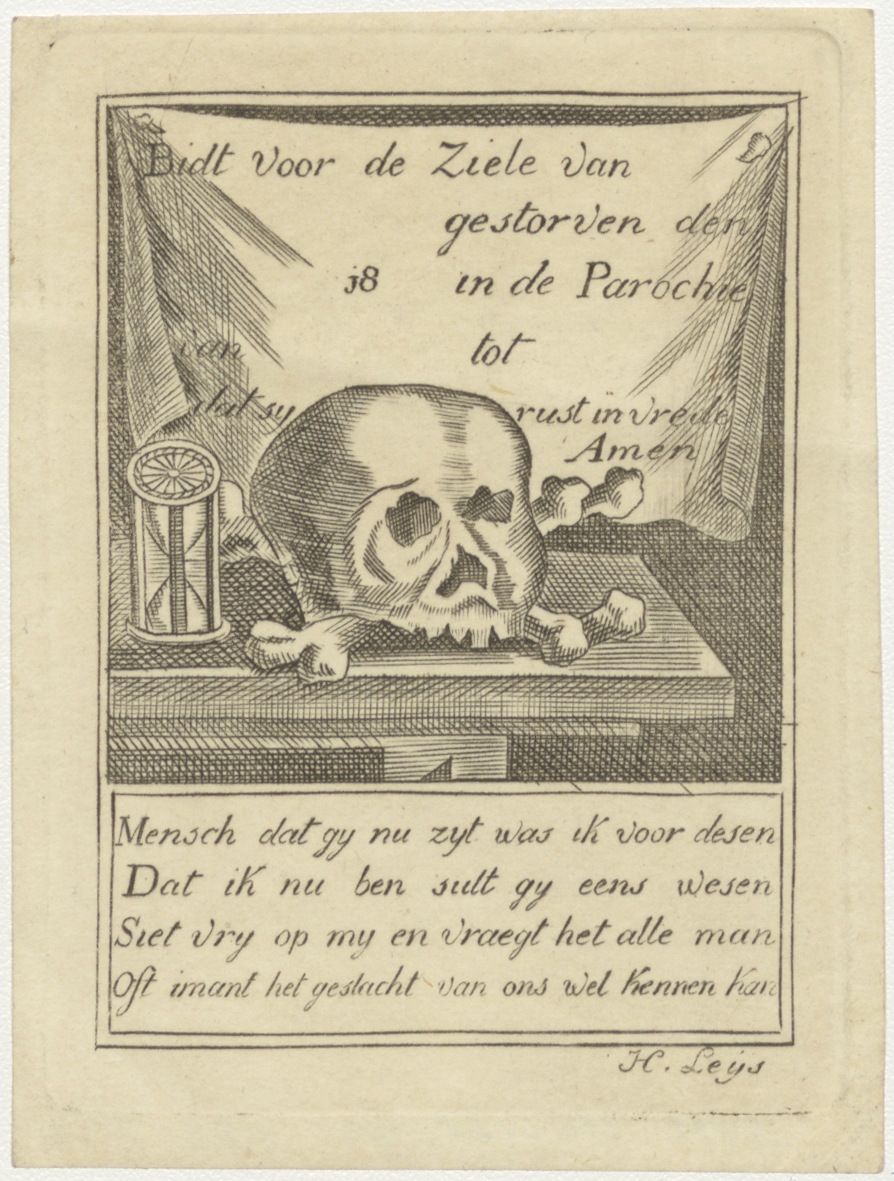 Bidt voor de Ziele van
gestorven den
j8 in de Parochie
van tot
dat sy rust in vrede
Amen
Mensch dat gy nu zyt was ik voor desen
Dat ik nu ben sult gy eens wesen
Siet vry op my en vraegt het alle man
Oft imant het geslacht van ons wel kennen kan
H. Leijs